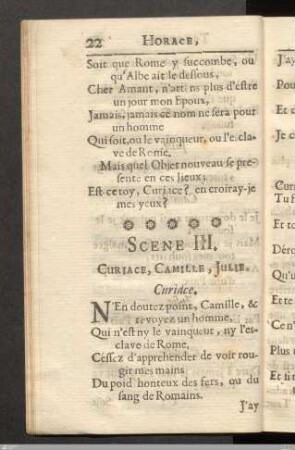 22 HORACE,
Soit que Rome y succombe, ou
qu'Albe ait le dessous,
Cher Amant, n'atten ns plus d'estre
un jour mon Epoux,
Jamais, jamais ce nom ne sera pour
un homme
Qui soit, ou le vainqueur, ou l'escla-
ve de Rome.
Mais quel Objet nouveau se pre-
sente en ces lieux?
Est ce toy, Curiace? en croiray-je
mes yeux?
SCENE III.
CURIACE, CAMILLE, JULIE.
Curiace.
N'En doutez point, Camille, &
revoyez un homme,
Qui n'est ny le vainqueur, ny l'es-
clave de Rome,
Cessez d'apprehender de voir rou-
git mes mains
Du poid honteux des fers, ou du
sang de Romains.
J'ay
J'ay
Et
Curi
Tu f
Et
Déro
Et